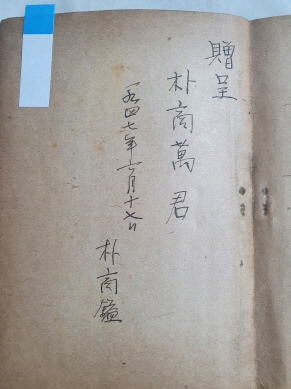 贈呈
朴商萬君
一九四七年六月十七日
朴商鎰